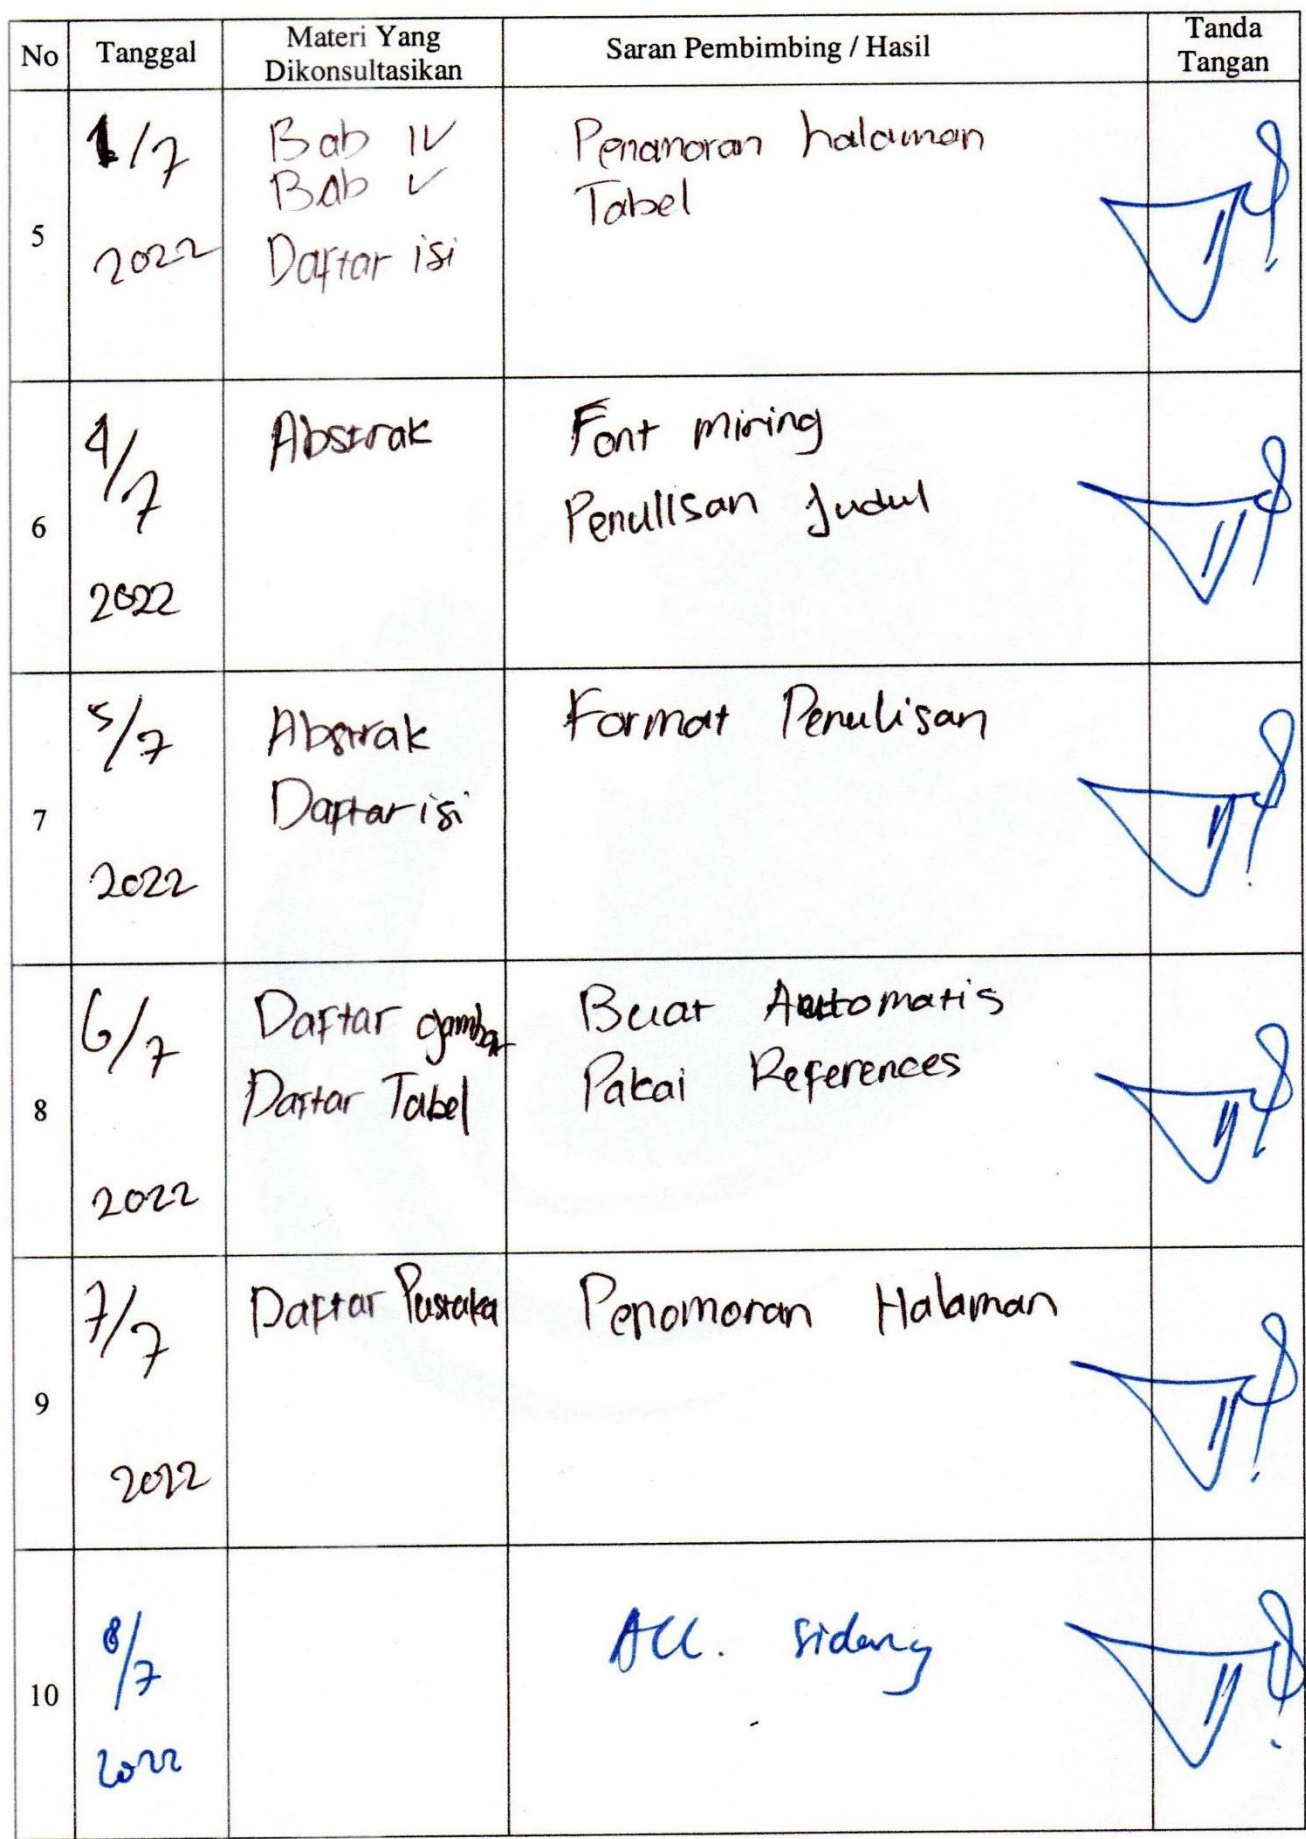 No Tanggal Materi Yang Dikonsultasikan Saran Pembimbing / Hasil Tanda Tangan
5
1/7
2022
Bab IV
Bab V
Daftar isi
Penomoran halaman
Tabel
6
4/7
2022
Abstrak
Font miring
Penulisan Judul
7
5/7
2022
Abstrak
Daftar isi
Format Penulisan
8
6/7
2022
Daftar gambar
Daftar Tabel
Buat Automatis
Pakai References
9
7/7
2022
Daftar Pustaka
Penomoran Halaman
10
8/7
2022
ACC. Sidang